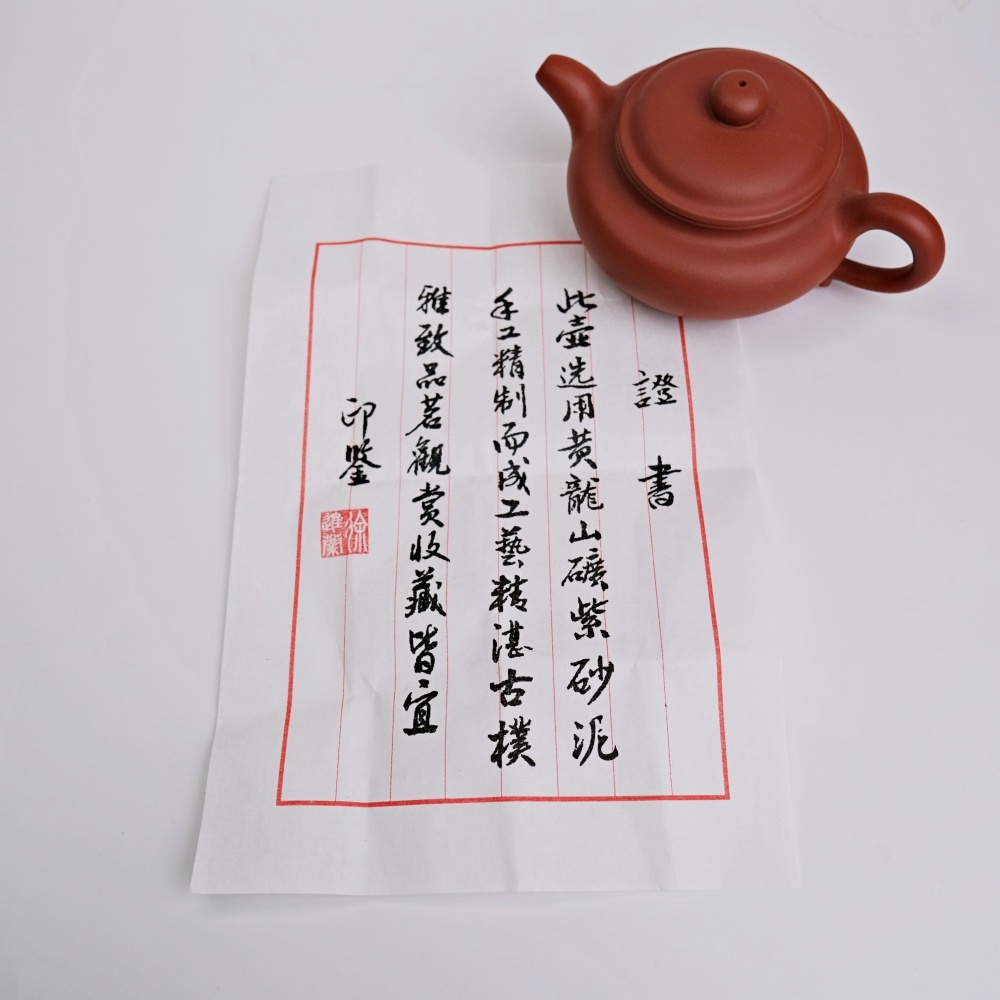 證書
此壺选用黄龍山礦紫砂泥
手工精制而成工藝精湛古樸
雅致品茗觀赏收藏皆宜
印鋻
徐進蘭